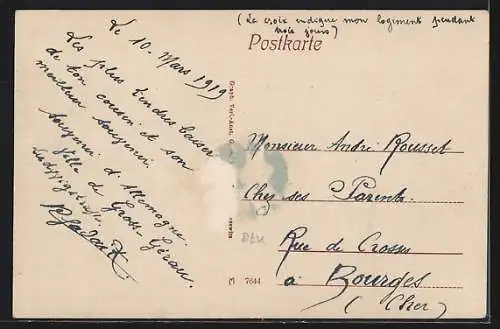 (La croix indique mon logement pendant
trois jours)
Postkarte
Le 10. Mars 1919
Les plus tendres baisers
de ton cousin et son
meilleur souvenir.
Souvenir d'Allemagne.
Ville de Gross-Gérau.
Monsieur André Rousset
Chez ses Parents
Rue de Crosses
à Bourges
(Cher)
M 7644